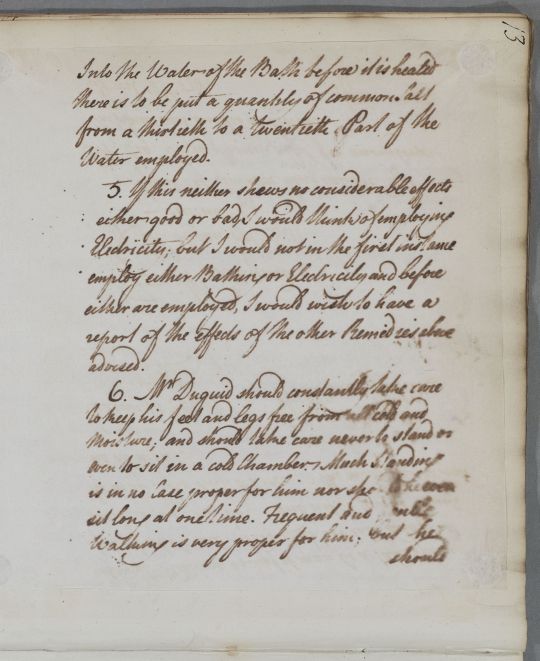 13
Into the Water of the Bath before it is heated
there is to be put a quantity of common Salt
from a thirtieth to a twentieth Part of the
Water employed.
5. If this neither shews no considerable effects
either good or bad, I would think of employing
Electricity, but I would not in the first instance
employ either Bathing or Electricity and before
either are employed, I would wish to have a
report of the effects of the other Remedies above
advised.
6. Mr Duguid should constantly take care
to keep his feet and legs free from all cold and
moisture; and should take care never to stand or
even to sit in a cold Chamber. Much Standing
is in no Case proper for him nor should he even
sit long at one time. Frequent and
Walking is very proper for him; but he
should